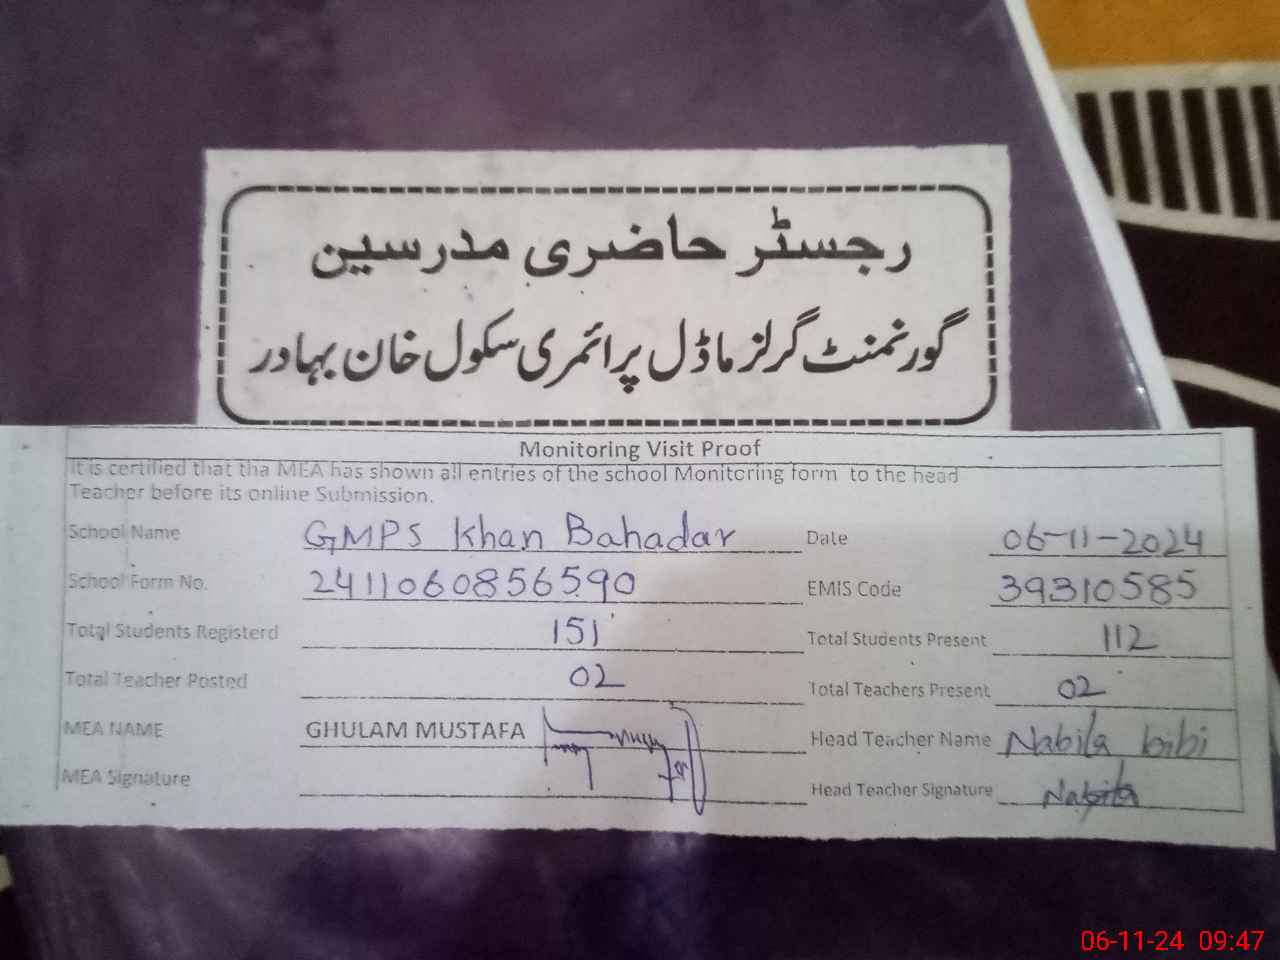 رجسٹر حاضری مدرسین
گورنمنٹ گرلز ماڈل پرائمری سکول خان بہادر
Monitoring Visit Proof
It is certified that tha MEA has shown all entries of the school Monitoring form to the head
Teacher before its online Submission.
School Name GMPS Khan Bahadar Date 06-11-2024
School Form No. 2411060856590 EMIS Code 39310585
Total Students Registerd 151 Total Students Present 112
Total Teacher Posted 02 Total Teachers Present 02
MEA NAME GHULAM MUSTAFA Head Teacher Name Nabila bibi
MEA Signature Head Teacher Signature Nabila
06-11-24 09:47